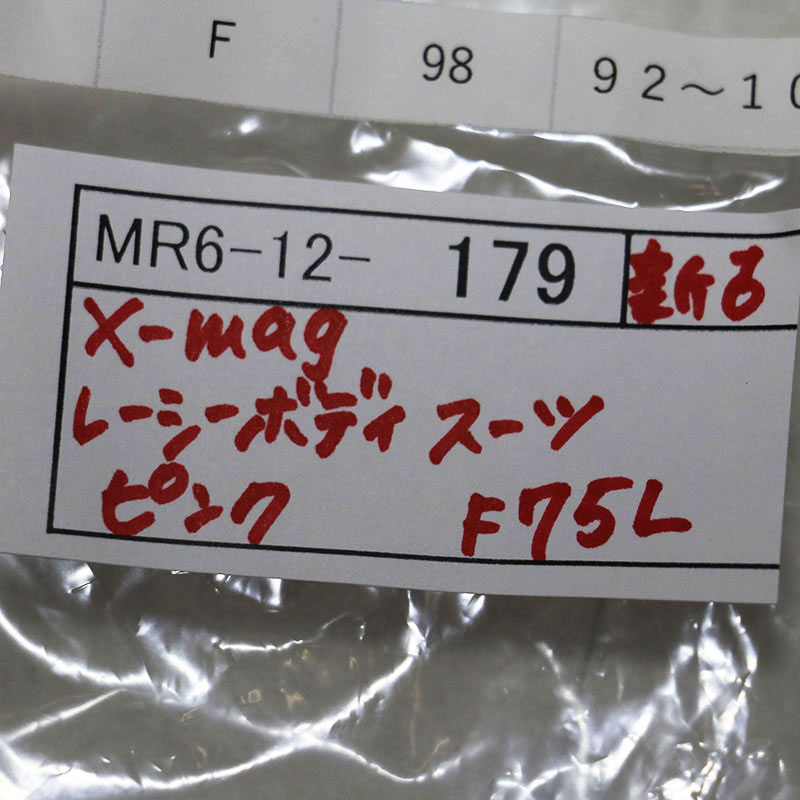 F 98 92～10
MR6-12- 179 新る
X-mag
レーシーボディスーツ
ピンク F75L